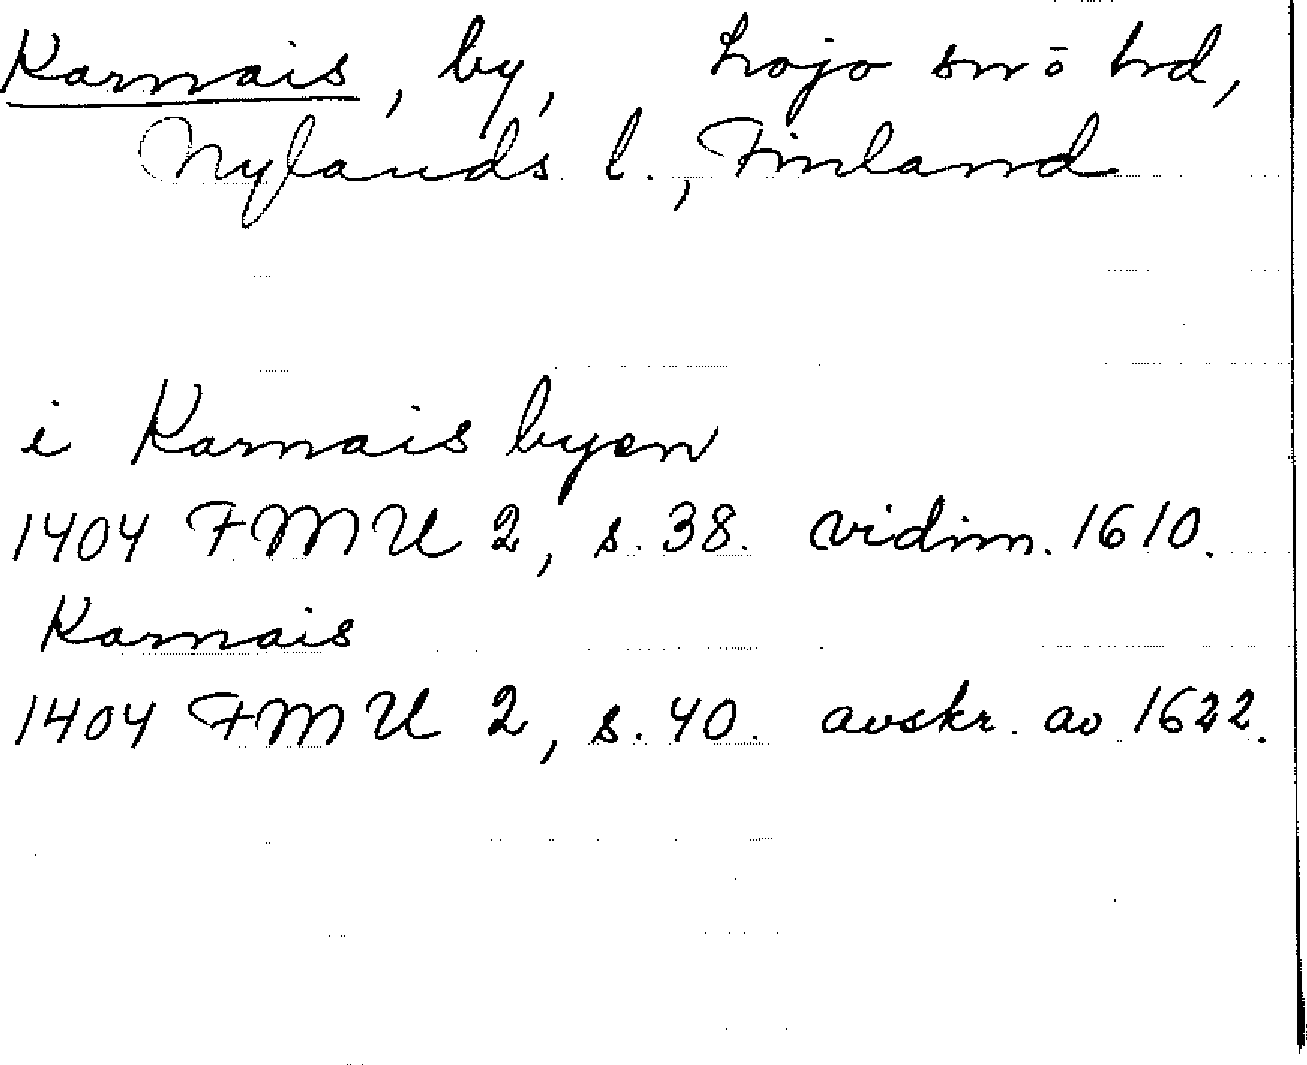 Karnais, by, Lojo sn o hd,
Nylands l., Finland
i Karnais byen
1404 FMU 2, s. 38. vidim. 1610.
Karnais
1404 FMU 2, s. 40. avskr. av 1622.